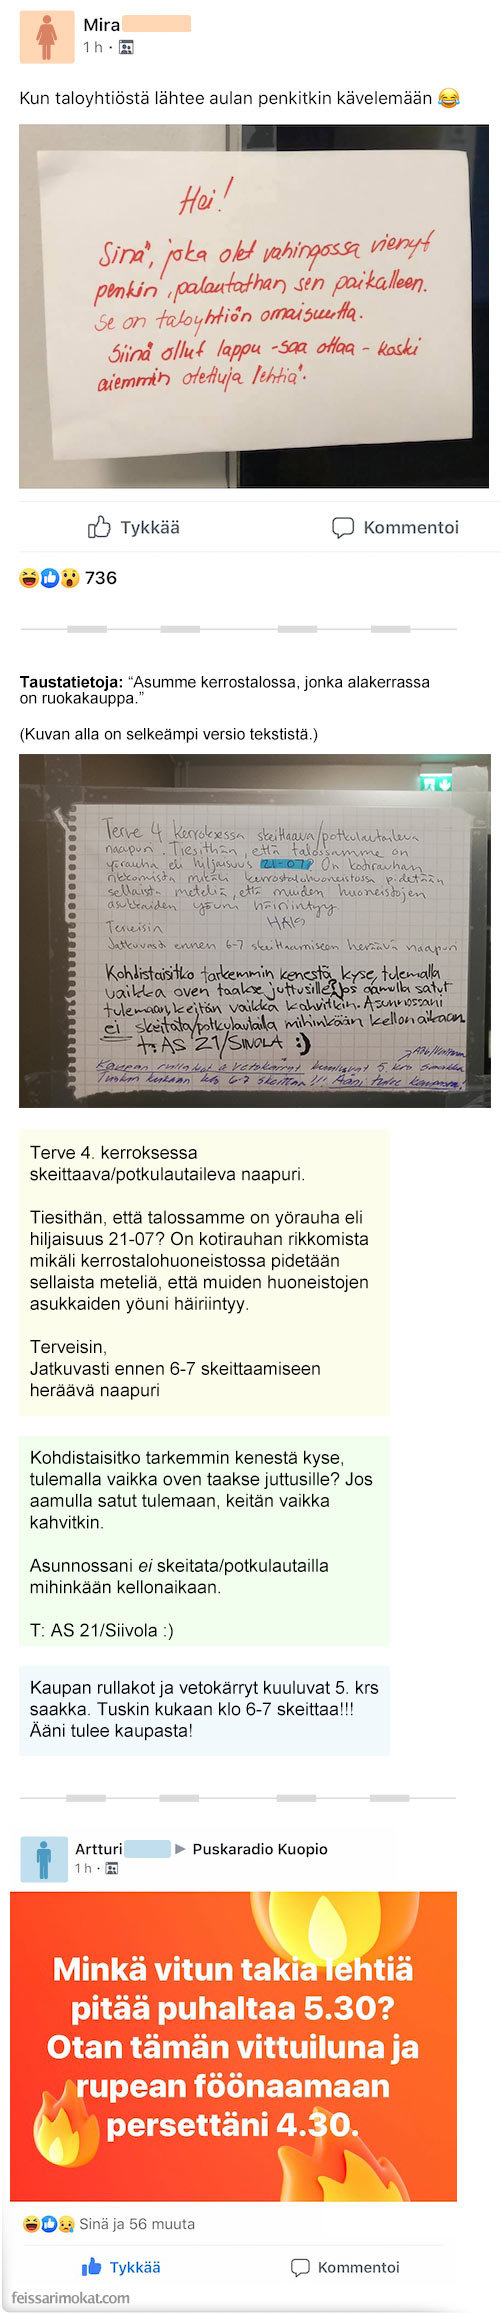 Mira
1 h ·
Kun taloyhtiöstä lähtee aulan penkitkin kävelemään 😂
Hei!
Sinä", joka olet vahingossa vienyt
penkin, palautathan sen paikalleen.
Se on taloyhtiön omaisuutta.
Siinä ollut lappu -saa ottaa - koski
aiemmin otettuja lehtiä".
Tykkää
Kommentoi
736
Taustatietoja: “Asumme kerrostalossa, jonka alakerrassa
on ruokakauppa.”
(Kuvan alla on selkeämpi versio tekstistä.)
Terve 4 kerroksessa skeittaava/potkulautaileva
naapuri. Tiesithän, että talossamme on
yörauha eli hiljaisuus 21-07? On kotirauhan
rikkomista mikäli kerrostalohuoneistossa pidetään
sellaista meteliä, että muiden huoneistojen
asukkaiden yöuni häiriintyy
Terveisin
Jatkuvasti ennen 6-7 skeittaamiseen heräävä naapuri
Kohdistaisitko tarkemmin kenestä kyse, tulemalla
vaikka oven taakse juttusille? Jos aamulla satut
tulemaan, keitän vaikka kahvitkin. Asunnossani
ei skeitata/potkulautailla mihinkään kellonaikaan.
T: AS 21/SIIVOLA :)
Kaupan rullakot ja vetokärryt kuuluvat 5. krs saakka.
Tuskin kukaan klo 6-7 skeittaa!!! Ääni tulee kaupasta!
Terve 4. kerroksessa
skeittaava/potkulautaileva naapuri.
Tiesithän, että talossamme on yörauha eli
hiljaisuus 21-07? On kotirauhan rikkomista
mikäli kerrostalohuoneistossa pidetään
sellaista meteliä, että muiden huoneistojen
asukkaiden yöuni häiriintyy.
Terveisin,
Jatkuvasti ennen 6-7 skeittaamiseen
heräävä naapuri
Kohdistaisitko tarkemmin kenestä kyse,
tulemalla vaikka oven taakse juttusille? Jos
aamulla satut tulemaan, keitän vaikka
kahvitkin.
Asunnossani ei skeitata/potkulautailla
mihinkään kellonaikaan.
T: AS 21/Siivola :)
Kaupan rullakot ja vetokärryt kuuluvat 5. krs
saakka. Tuskin kukaan klo 6-7 skeittaa!!!
Ääni tulee kaupasta!
Artturi ▶ Puskaradio Kuopio
1 h ·
Minkä vitun takia lehtiä
pitää puhaltaa 5.30?
Otan tämän vittuiluna ja
rupean föönaamaan
persettäni 4.30.
Sinä ja 56 muuta
Tykkää
Kommentoi
feissarimokat.com